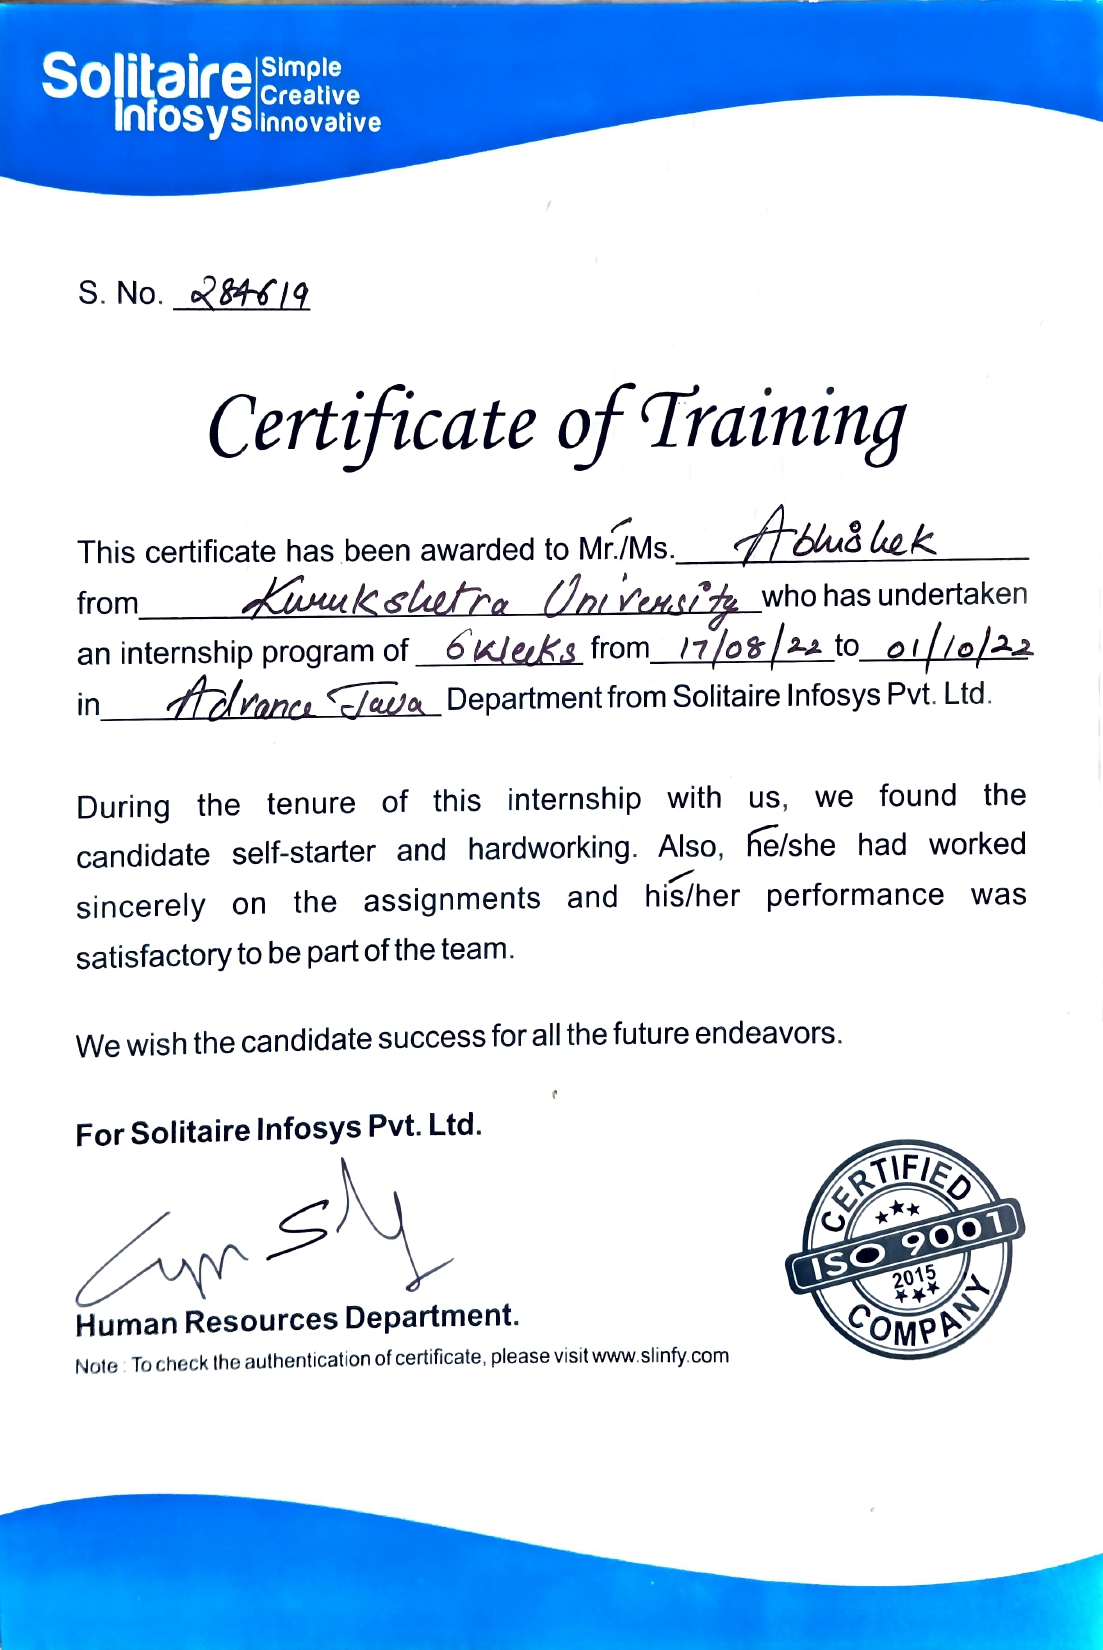 Solitaire
Infosys
Simple
Creative
innovative
S. No. 284619
Certificate of Training
This certificate has been awarded to Mr./Ms. Abhishek
from Kurukshetra University who has undertaken
an internship program of 6 Weeks from 17/08/22 to 01/10/22
in Advance Java Department from Solitaire Infosys Pvt. Ltd.
During the tenure of this internship with us, we found the
candidate self-starter and hardworking. Also, he/she had worked
sincerely on the assignments and his/her performance was
satisfactory to be part of the team.
We wish the candidate success for all the future endeavors.
For Solitaire Infosys Pvt. Ltd.
Human Resources Department.
Note : To check the authentication of certificate, please visit www.slinfy.com
CERTIFIED
ISO 9001
2015
COMPANY